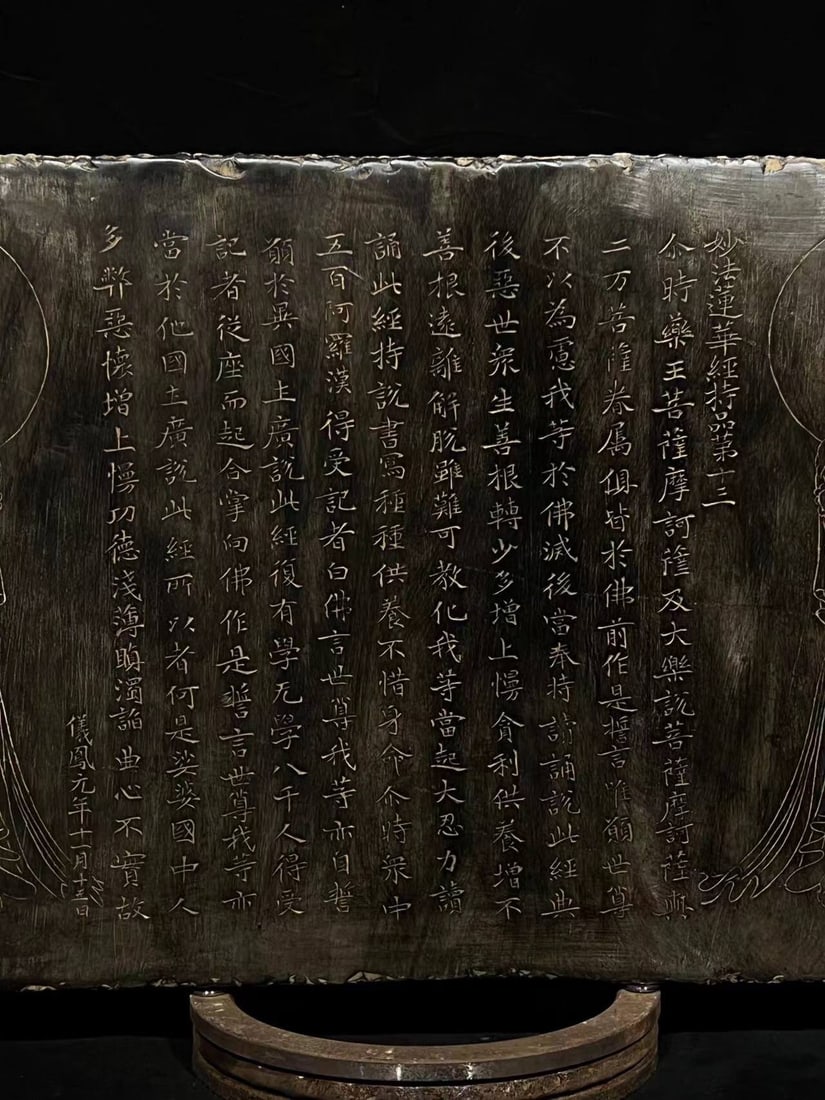 妙法蓮華經持品第十三
尒時藥王菩薩摩訶薩及大樂說菩薩摩訶薩與
二万菩薩眷属俱皆於佛前作是誓言唯願世尊
不以為慮我等於佛滅後當奉持讀誦說此經典
後惡世衆生善根轉少多增上慢貪利供養增不
善根遠離解脫雖難可教化我等當起大忍力讀
誦此經持說書寫種種供養不惜身命尒時衆中
五百阿羅漢得受記者白佛言世尊我等亦自誓
願於異國土廣說此經復有學无學八千人得受
記者從座而起合掌向佛作是誓言世尊我等亦
當於他國土廣說此經所以者何是娑婆國中人
多弊惡懷增上慢功德淺薄瞋濁諂曲心不實故
儀鳳元年十一月十三日